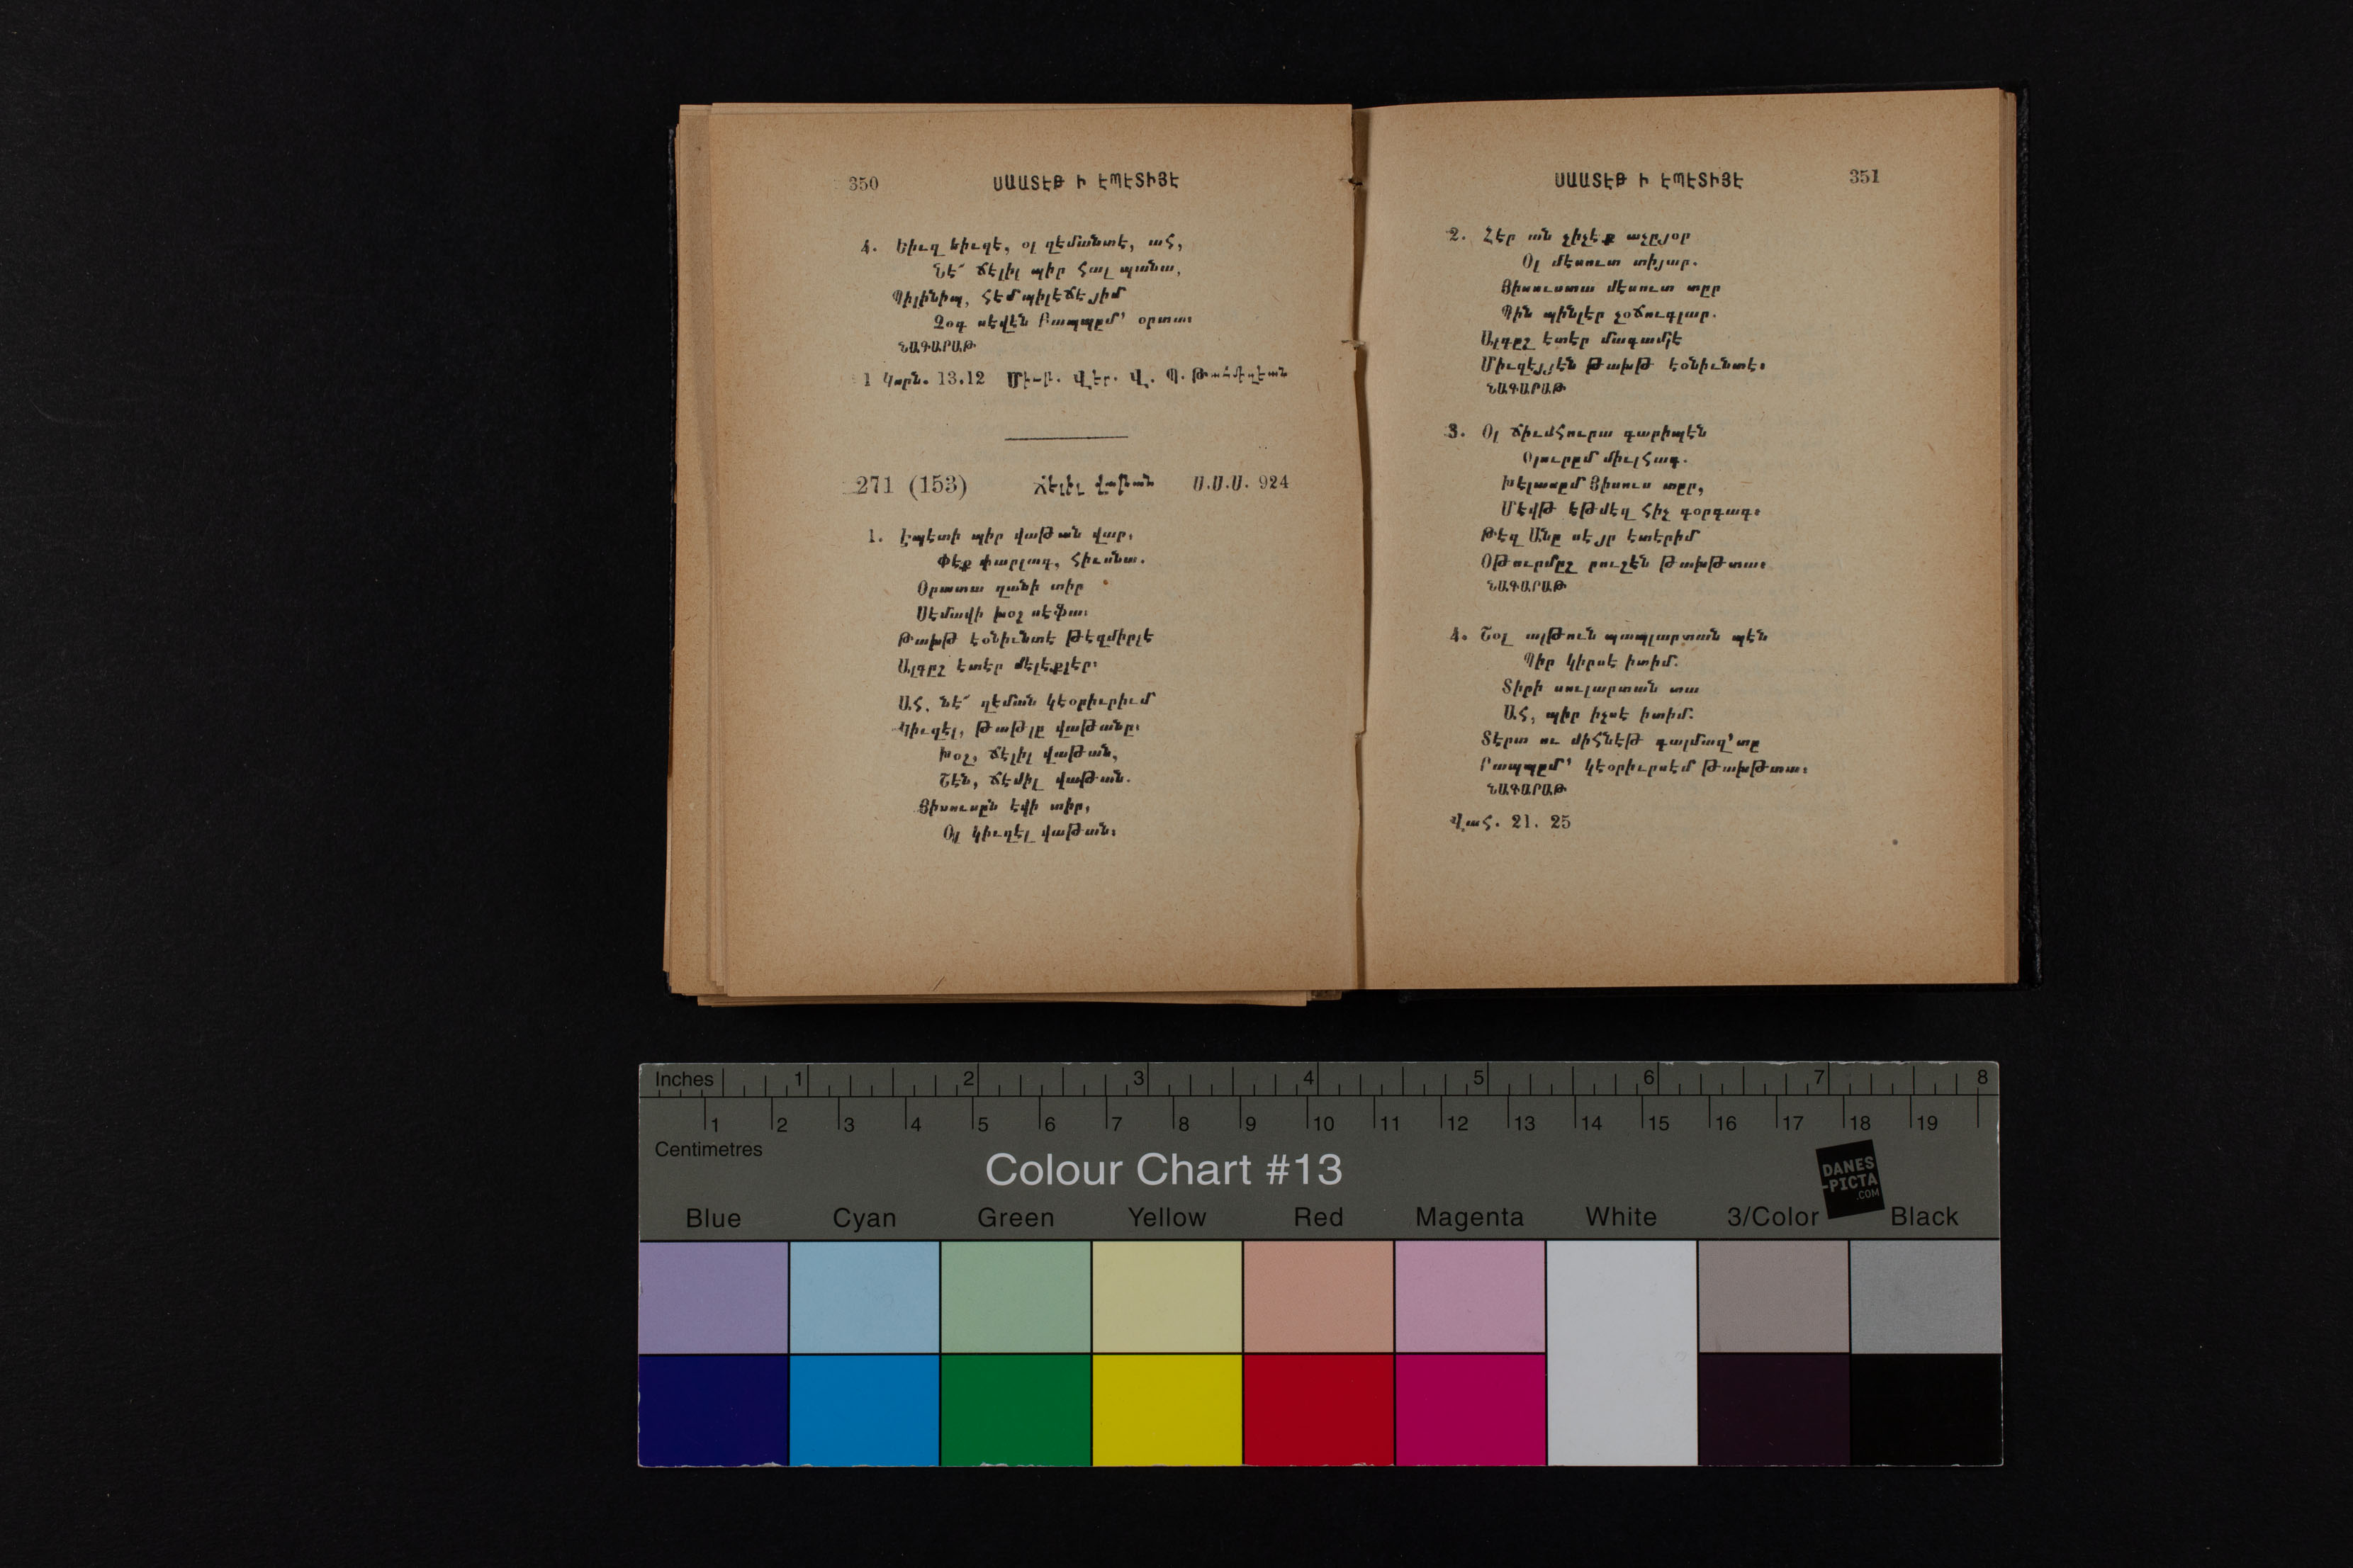 350 ՍԱԱՏԷԹ Ի ԷՊԷՏԻՅԷ
4. Եիւզ եիւզէ, օլ զէմանտէ, ահ,
Նէ՜ ճէլիլ պիր հալ պանա,
Պիլինիպ, հէմ պիլէճէյիմ
Չօգ սէվէն Րապպըմ՚ օրտա։
ՆԱԳԱՐԱԹ
1 Կորն. 13.12 Միւծ. Վէր. Վ. Պ.
271 (153) Ճէլիլ Վաթան Ս.Ս.Ս. 924
1. Էպէտի պիր վաթան վար,
Փէք փարլագ, հիւսնա.
Օրատա զանի տիր
Սէմավի խօշ սէֆա։
Թախթ էօնիւնտէ թէզմիրլէ
Ալգըշ էտէր մէլէքլէր։
Ահ, նէ՜ զէման կէօրիւրիւմ
Կիւզէլ, թաթլը վաթանը։
Խօշ, ճէլիլ վաթան,
Շէն, ճէմիլ վաթան.
Յիսուսըն էվի տիր,
Օլ կիւզէլ վաթան։
ՍԱԱՏԷԹ Ի ԷՊԷՏԻՅԷ 351
2. Հէր ան չիչէք աչըյօր
Օլ մէսուտ տիյար.
Յիսուստա մէսուտ տըր
Պին պինլէր չօճուգլար.
Ալգըշ էտէր մագամլէ
Միւզէյյէն թախթ էօնիւնտէ։
ՆԱԳԱՐԱԹ
3. Օլ ճիւմհուրա գարիպէն
Օլուրըմ միւլհագ.
Խէլասըմ Յիսուս տըր,
Մէվթ եթմէզ հիչ գօրգագ։
Թէզ Անը սէյր էտէրիմ
Օթուրմըշ րուշէն թախթտա։
ՆԱԳԱՐԱԹ
4. Շօլ ալթուն պապլարտան պէն
Պիր կիրսէ իտիմ.
Տիրի սուլարտան տա
Ահ, պիր իչսէ իտիմ.
Տէրտ ու միհնէթ գալմազ՚տը
Րապպըմ՚ կէօրիւրսէմ թախթտա։
ՆԱԳԱՐԱԹ
Վահ. 21. 25
Inches 1 2 3 4 5 6 7 8
1 2 3 4 5 6 7 8 9 10 11 12 13 14 15 16 17 18 19
Centimetres
Colour Chart #13
DANES
-PICTA
.COM
Blue Cyan Green Yellow Red Magenta White 3/Color Black